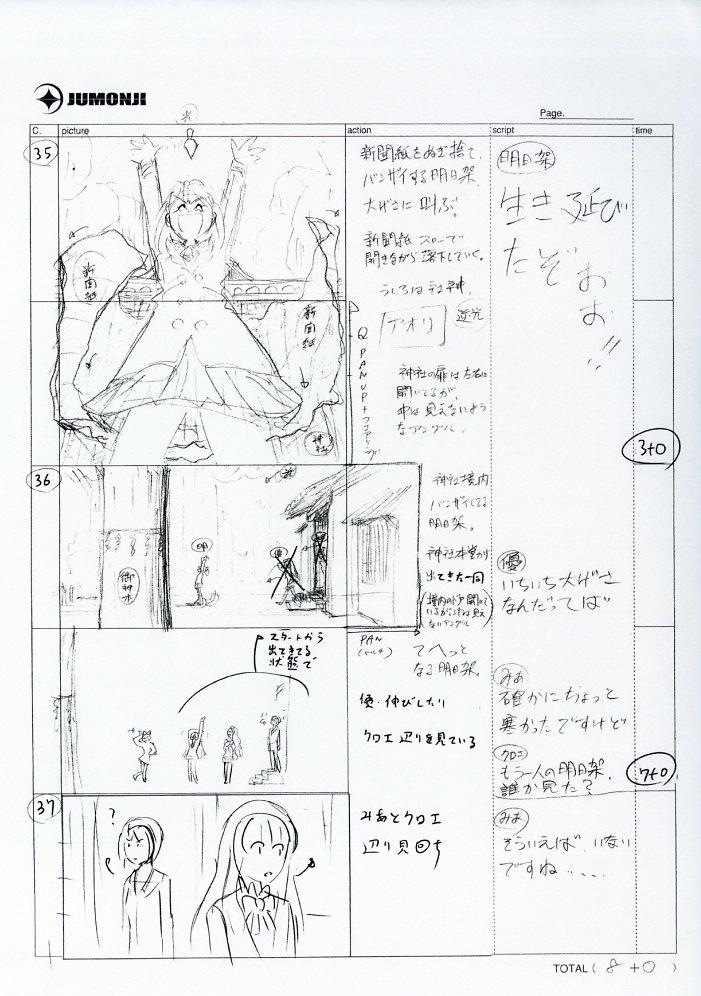 JUMONJI
Page.
C.
picture
action
script
time
35
新聞紙
新聞紙
神社
新聞紙をぬぎ捨て、
バンザイする明日架。
大げさに叫ぶ。
新聞紙スローで
開きながら落下していく。
うしろは社神。
アオリ
逆光
Q PAN UP + フォロー
神社の扉は左右に
開いてるが、
中は見えないよう
なアングル。
明日架
生き延び
たぞ
おお!!
3+0
36
御神木
明
神社境内
バンザイしてる
明日架。
神社本堂から
出てきた一同
優
いちいち大げさ
なんだってば
スタートから
出てきてる
状態で
PAN
てへっと
なる明日架。
優・伸びしたり
クロエ辺りを見ている
みぁ
確かにちょっと
寒かったですけど
クロエ
もう一人の明日架、
誰か見た?
7+0
37
?
みあとクロエ
辺り見回す
みぁ
そういえば、いない
ですね....
TOTAL ( 8 + 0 )